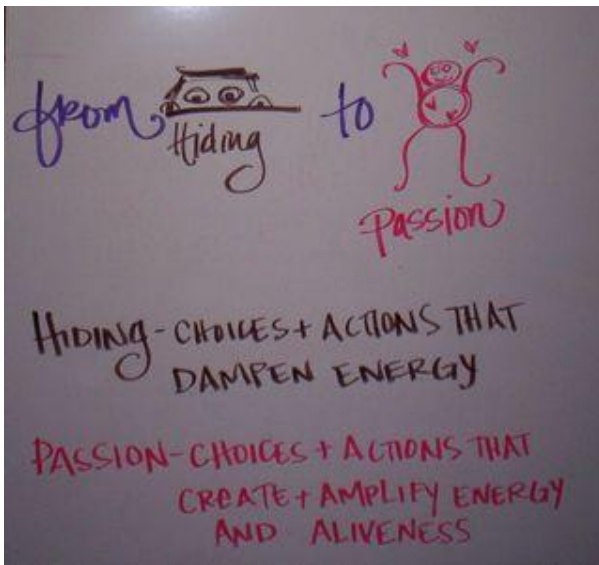 from Hiding to Passion
HIDING - CHOICES + ACTIONS THAT
DAMPEN ENERGY
PASSION - CHOICES + ACTIONS THAT
CREATE + AMPLIFY ENERGY
AND ALIVENESS